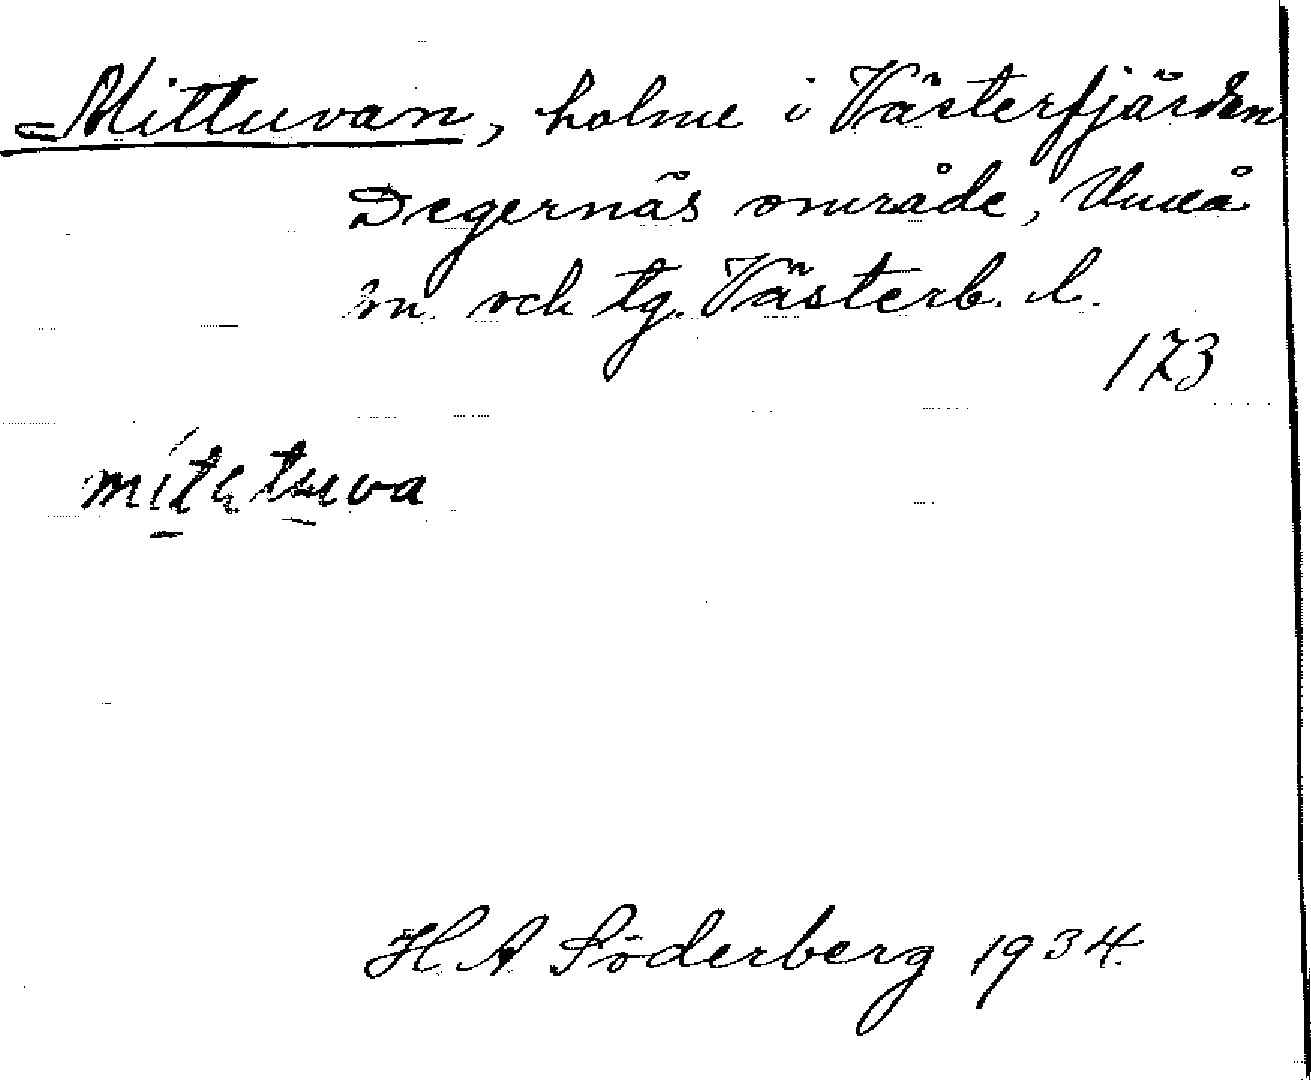 Mittuvan, holme i Västerfjärden
Degernäs område, Umeå
sn. och tg. Västerb. l.
173
H. A. Söderberg 1934.